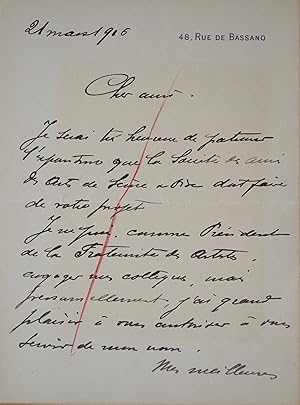 21 mars 1906
48, RUE DE BASSANO
Cher ami.
Je serai très heureux de patroner
l'exposition que la Société des amis
des Arts de Seine et Oise doit faire
de votre projet
Je ne puis, comme Président
de la Fraternité des Artistes,
engager mes collègues, mais
personnellement, j'ai grand
plaisir à vous autoriser à vous
servir de mon nom.
Mes meilleures